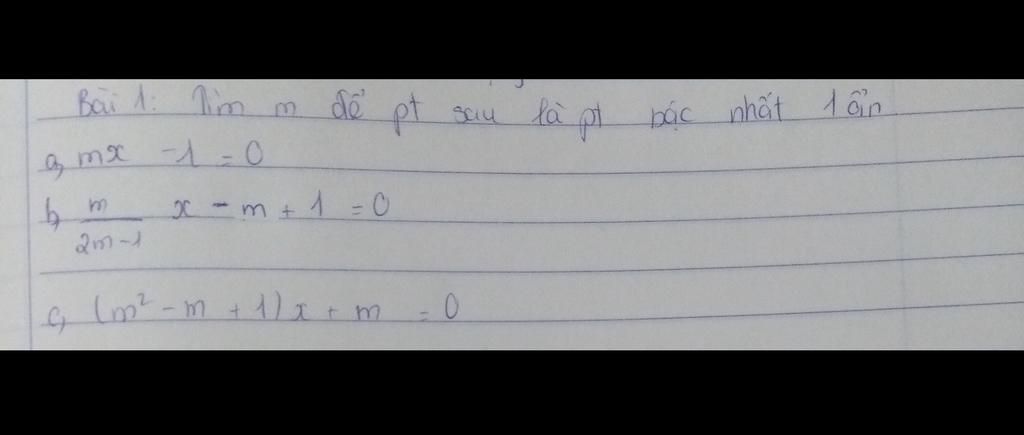 Bài 1: Tìm m để pt sau là pt bậc nhất 1 ẩn
a, mx - 1 = 0
b, m/(2m-1) x - m + 1 = 0
c, (m² - m + 1)x + m = 0